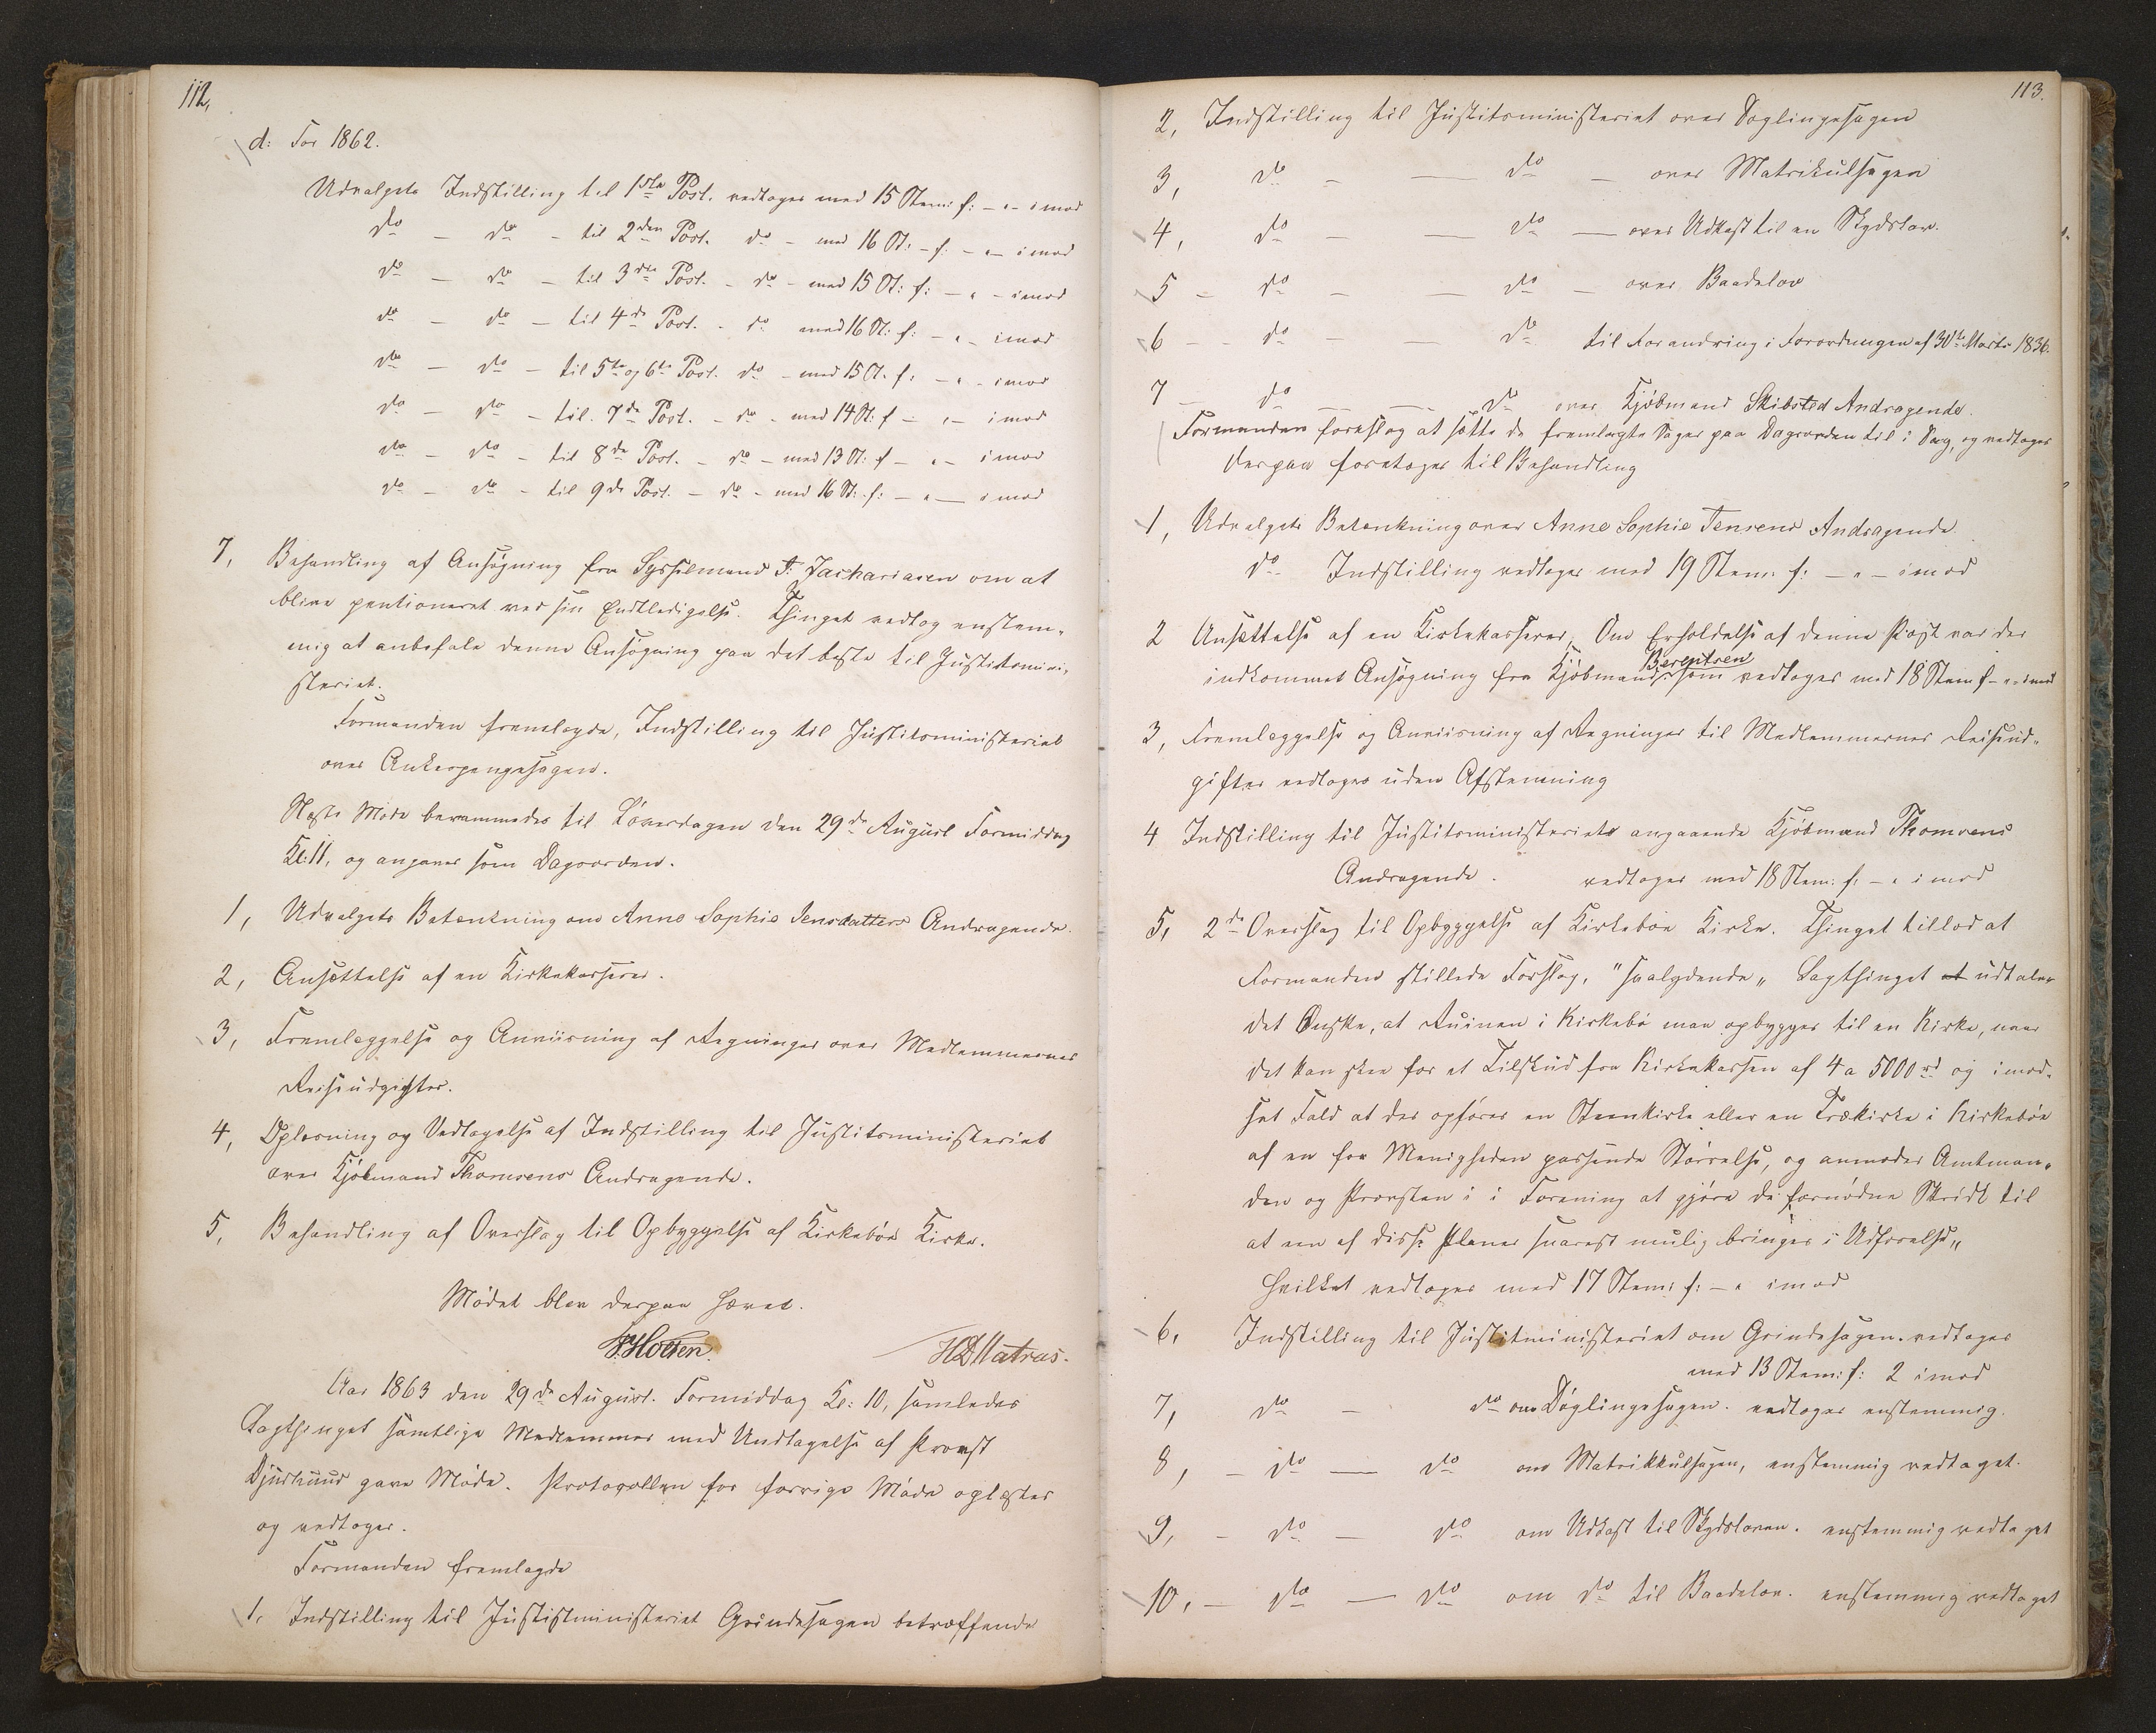 112,
d: For 1862.
Udvalgets Indstilling til 1ste Post. vedtoges med 15 Stem: f: - " - imod
do - do - til 2den Post. do - med 16 St: - f: - " - imod
do - do - til 3die Post. - do - med 15 St: f: - " - imod
do - do - til 4de Post. - do med 16 St: f: - " - imod
do - do - til 5te og 6te Post. do - med 15 St. f: - " - imod
do - do - til 7de Post. - do - med 14 St: f - " - imod
do - do - til 8de Post. - do - med 13 St: f - " - imod
do - do - til 9de Post. - do - med 16 St: f: - " - imod
7, Behandling af Ansøgning fra Sysselmand J: Zachariasen om at
blive pentioneret ved sin Entledigelse. Thinget vedtog enstem-
mig at anbefale denne Ansøgning paa det beste til Justitsmini-
steriet.
Formanden fremlagde, Indstilling til Justitsministeriet
over Ankerpengesagen.
Neste Møde berammedes til Løverdagen den 29de August Formiddag
Kl: 11, og angaves som Dagsorden.
1, Udvalgets Betænkning om Anne Sophie Jensdatters Andragende.
2, Ansættelse af en Kirkekasserer.
3, Fremlæggelse og Anviisning af Regninger over Medlemmernes
Reiseudgifter.
4, Oplæsning og Vedtagelse af Indstilling til Justitsministeriet
over Kjøbmand Thomsens Andragende.
5, Behandling af Overslag til Opbyggelse af Kirkebøe Kirke.
Mødet blev derpaa hævet.
HDMatras.
Aar 1863 den 29de August. Formiddag Kl: 10, samledes
Lagthinget samtlige Medlemmer med Undtagelse af Provst
Djurhuus gave Møde. Protocollen for forrige Møde oplæstes
og vedtoges.
Formanden fremlagde
1. Indstilling til Justistministeriet Grindesagen betræffende
113.
2, Indstilling til Justitsministeriet over Døglingesagen
3, do - — do - over Matrikulsagen
4, do - — do — over Udkast til en Skydslov.
5 - do - — do — over Baadelov
6 - - do - — do til Forandring i Forordningen af 30te Marts 1836.
7 - do — — do over Kjøbmand Skibsted Andragende.
Formanden foreslog at sætte de fremlagte Sager paa Dagsorden til i Dag, og vedtoges
derpaa foretoges til Behandling
1, Udvalgets Betænkning over Anne Sophie Jensens Andragende.
do Indstilling vedtoges med 19 Stem: f: - " - imod
2 Ansættelse af en Kirkekasserer, Om Erholdelse af denne Post var der
Berentsen
indkommet Ansøgning fra Kjøbmand som vedtoges med 18 Stem f - " - imod
3, Fremlæggelse og Anviisning af Regninger til Medlemmernes Reiseud-
gifter vedtoges uden Afstemning
4 Indstilling til Justitsministeriet angaaende Kjøbmand Thomsens
Andragende. vedtoges med 18 Stem: f: - " imod
5, 2de Overslag til Opbyggelse af Kirkebøe Kirke. Thinget tillod at
Formanden stillede Forslag, "saalydende" Lagthinget at udtaler
det Ønske, at Ruinen i Kirkebø maa opbygges til en Kirke, naar
det kan skee for et Tilskud fra Kirkekassen af 4 a 5000 rd og i mod-
sat Fald at der opføres en Steenkirke eller en Trækirke i Kirkebøe
af en for Menigheden passende Størrelse, og anmoder Amtman-
den og Provsten i i Forening at gjøre de fornødne Skridt til
at een af disse Planer snarest mulig bringes i Udførelse"
hvilket vedtoges med 17 Stem: f: - " imod
6, Indstilling til Justitministeriet om Grindesagen. vedtoges
med 13 Stem: f: 2 imod
7, do - do om Døglingesagen. vedtoges enstemmig.
8, - do — do om Matrikkulsagen, enstemmig vedtaget.
9, - do — do om Udkast til Skydsloven. enstemmig vedtaget
10, - do — do om do til Baadelov. enstemmig vedtaget